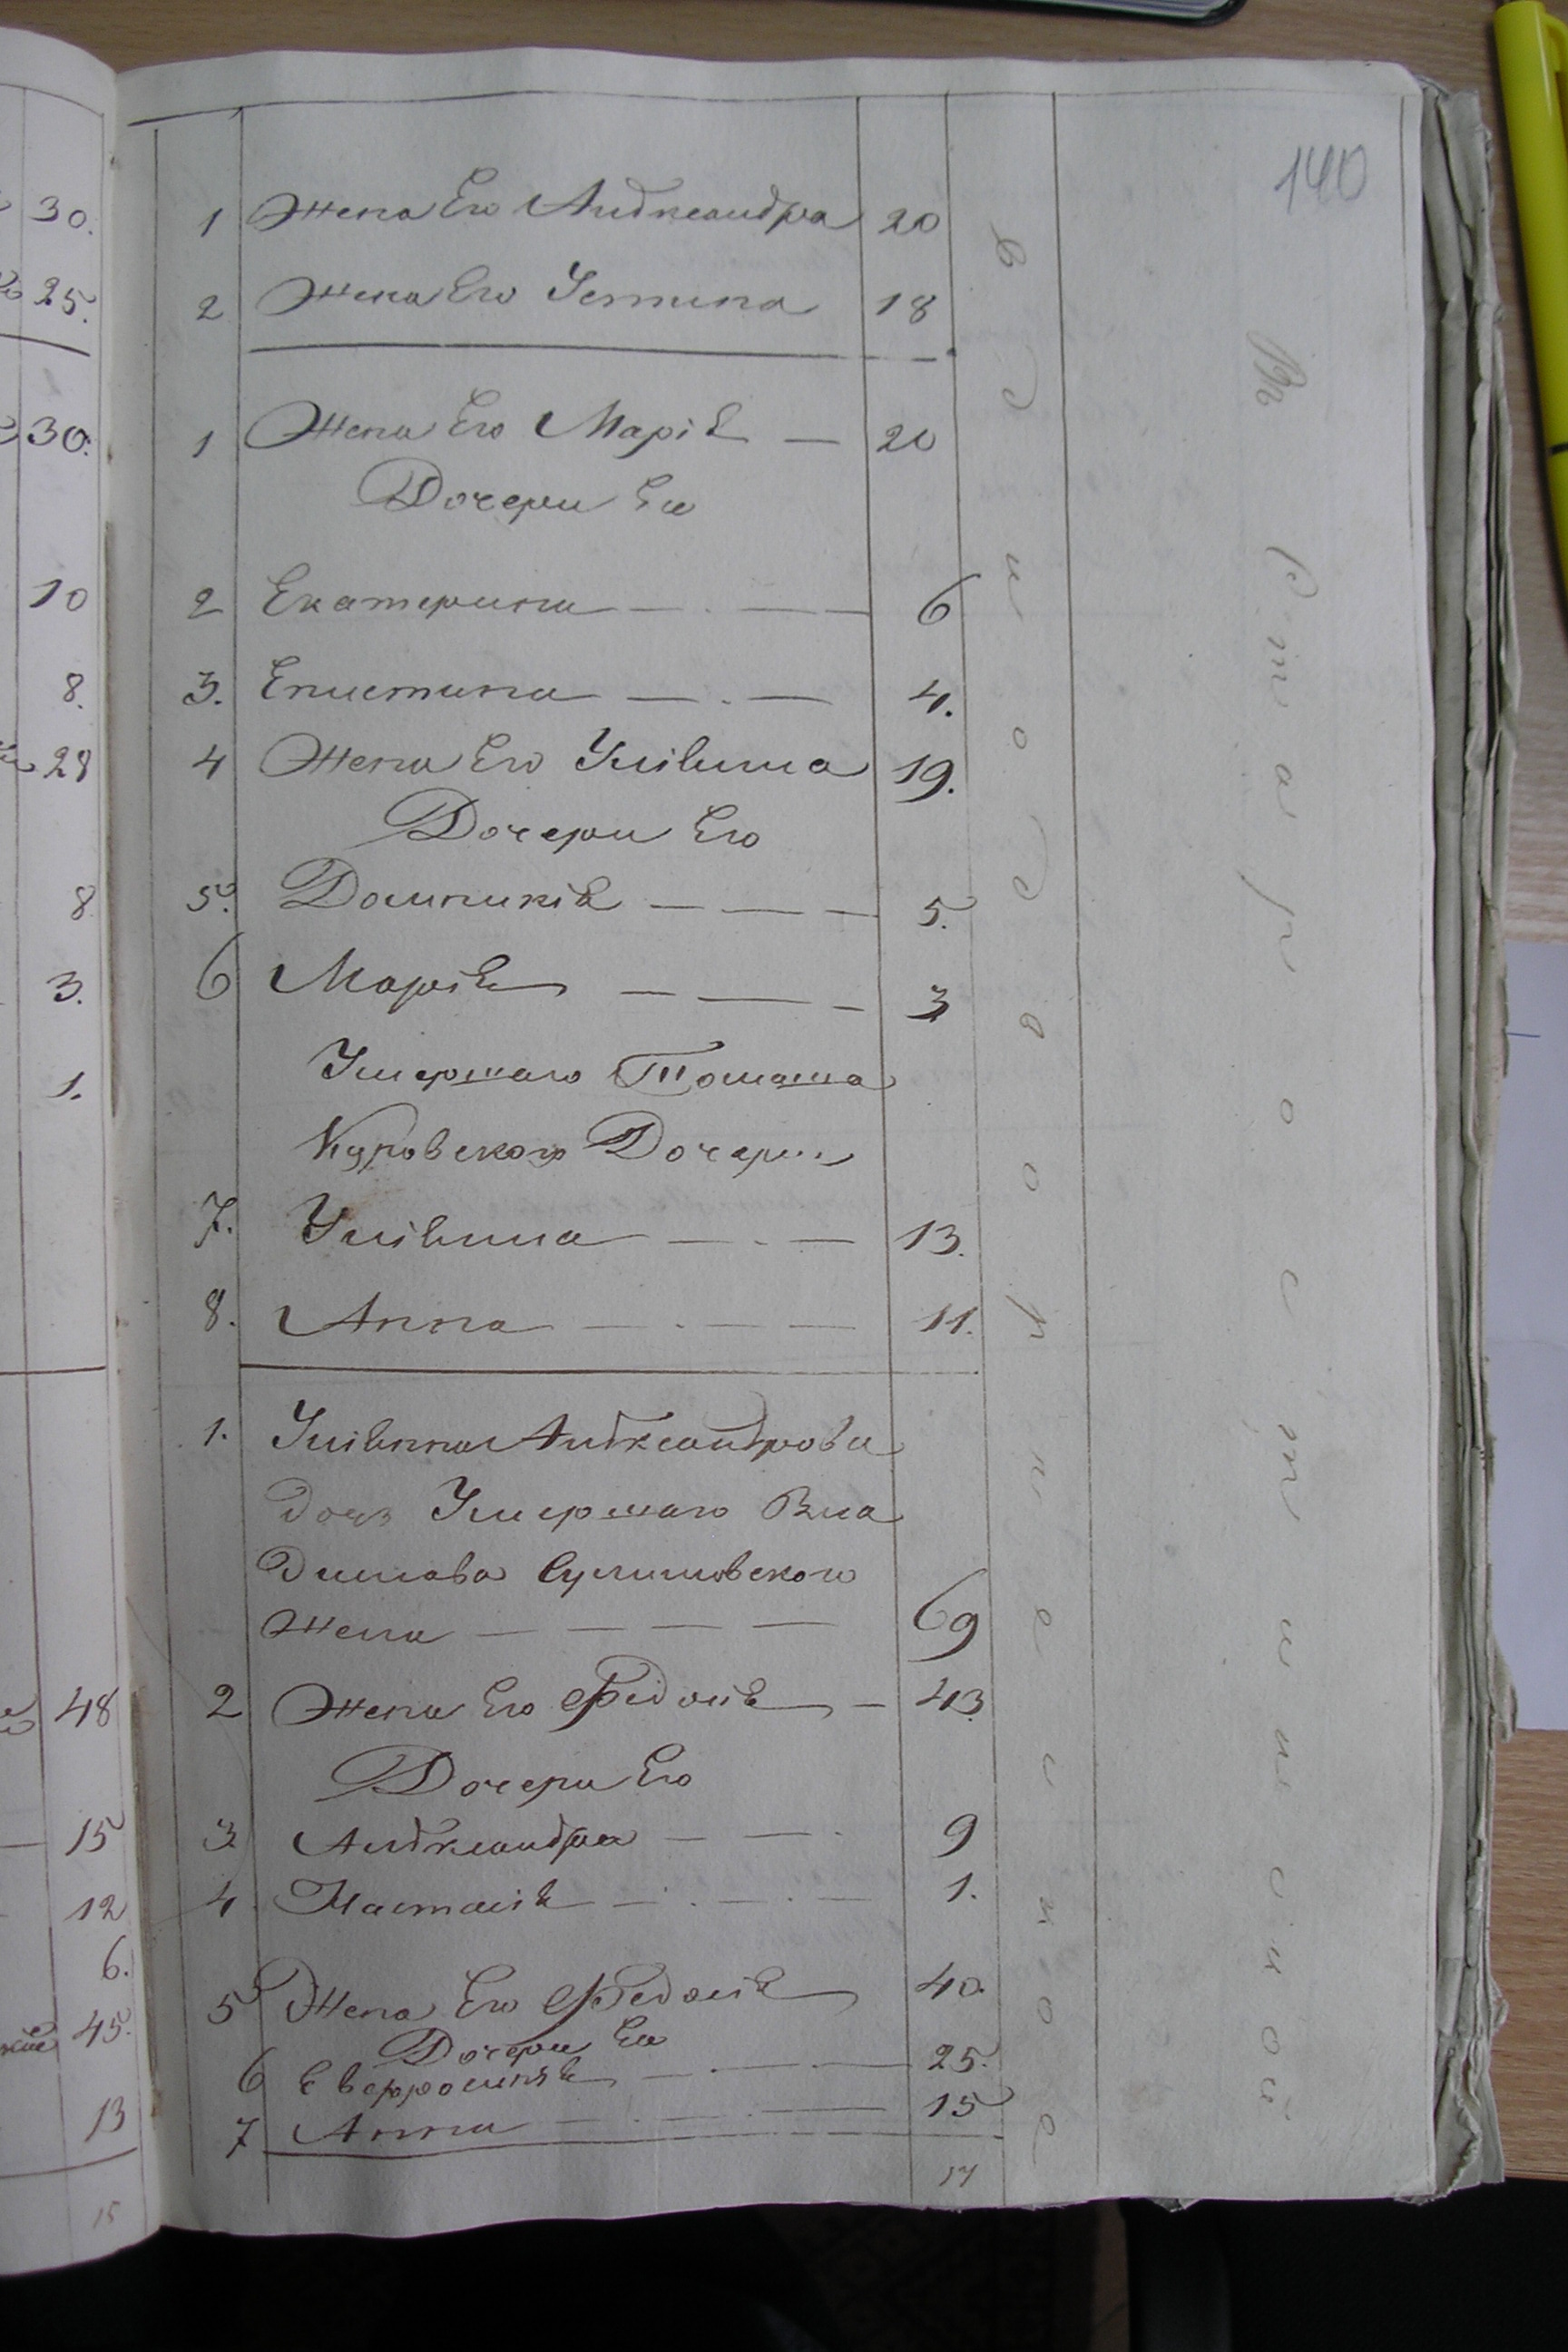 140
1 Жена Его Александра 20
2 Жена Его Устина 18
1 Жена Его Марiя — 20
Дочери Его
2 Екатерина — . — 6
3. Епистина — . — 4.
4 Жена Его Улiяна 19.
Дочери Его
5. Домникiя — — — 5.
6 Марiя — — — 3
Умершаго Томаша
Куровскаго Дочери
7. Улiяна — . — 13.
8. Анна — . — — 11.
1. Улiянна Александрова
дочь Умершаго Вла
димова Сулимовского
Жена — — — — 69
2 Жена Его Феодосiя — 43
Дочери Его
3 Александра — — . 9
4 Настасiя — . — . — 1.
5 Жена Его Феодосiя 40.
Дочери Его
6 Евфросинiя — . — . — 25.
7 Анна — . — . — 15
17
въ Староконстантиновской
30.
25.
30.
10
8.
28
8
3.
1.
48
15
12
6.
45.
13
15